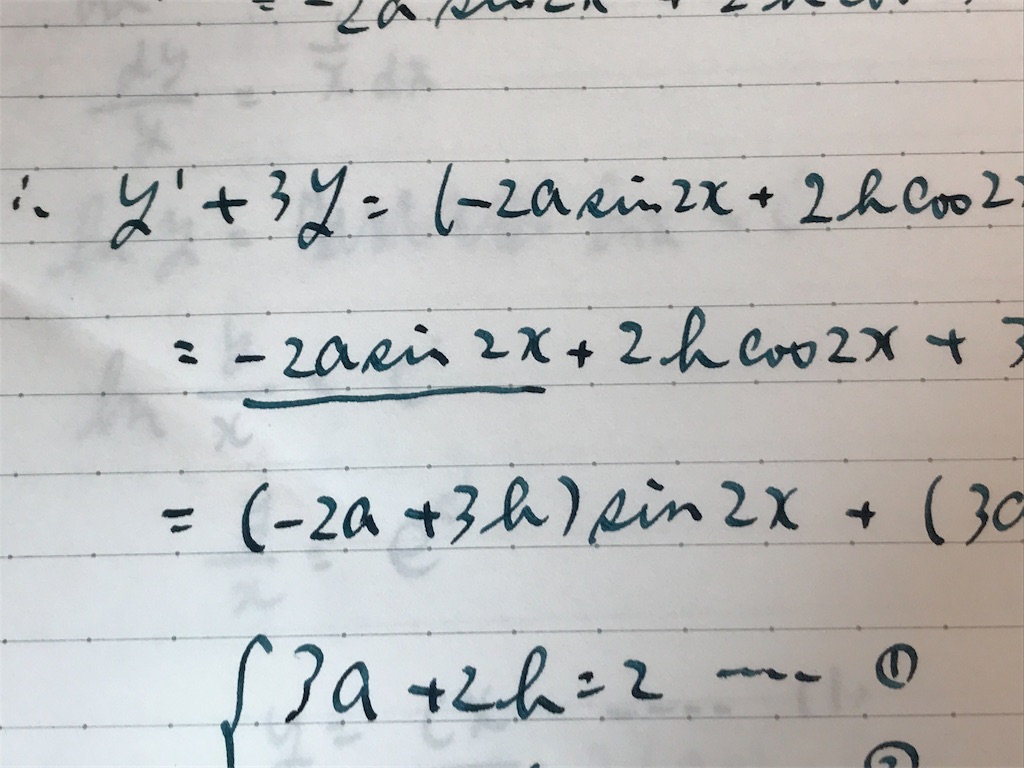 = -2a sin2x + 2b cos
∴ y' + 3y = (-2a sin2x + 2b cos2x
= -2a sin 2x + 2b cos2x + 3
= (-2a + 3b) sin 2x + (3a
{ 3a + 2b = 2 ---- ①
②